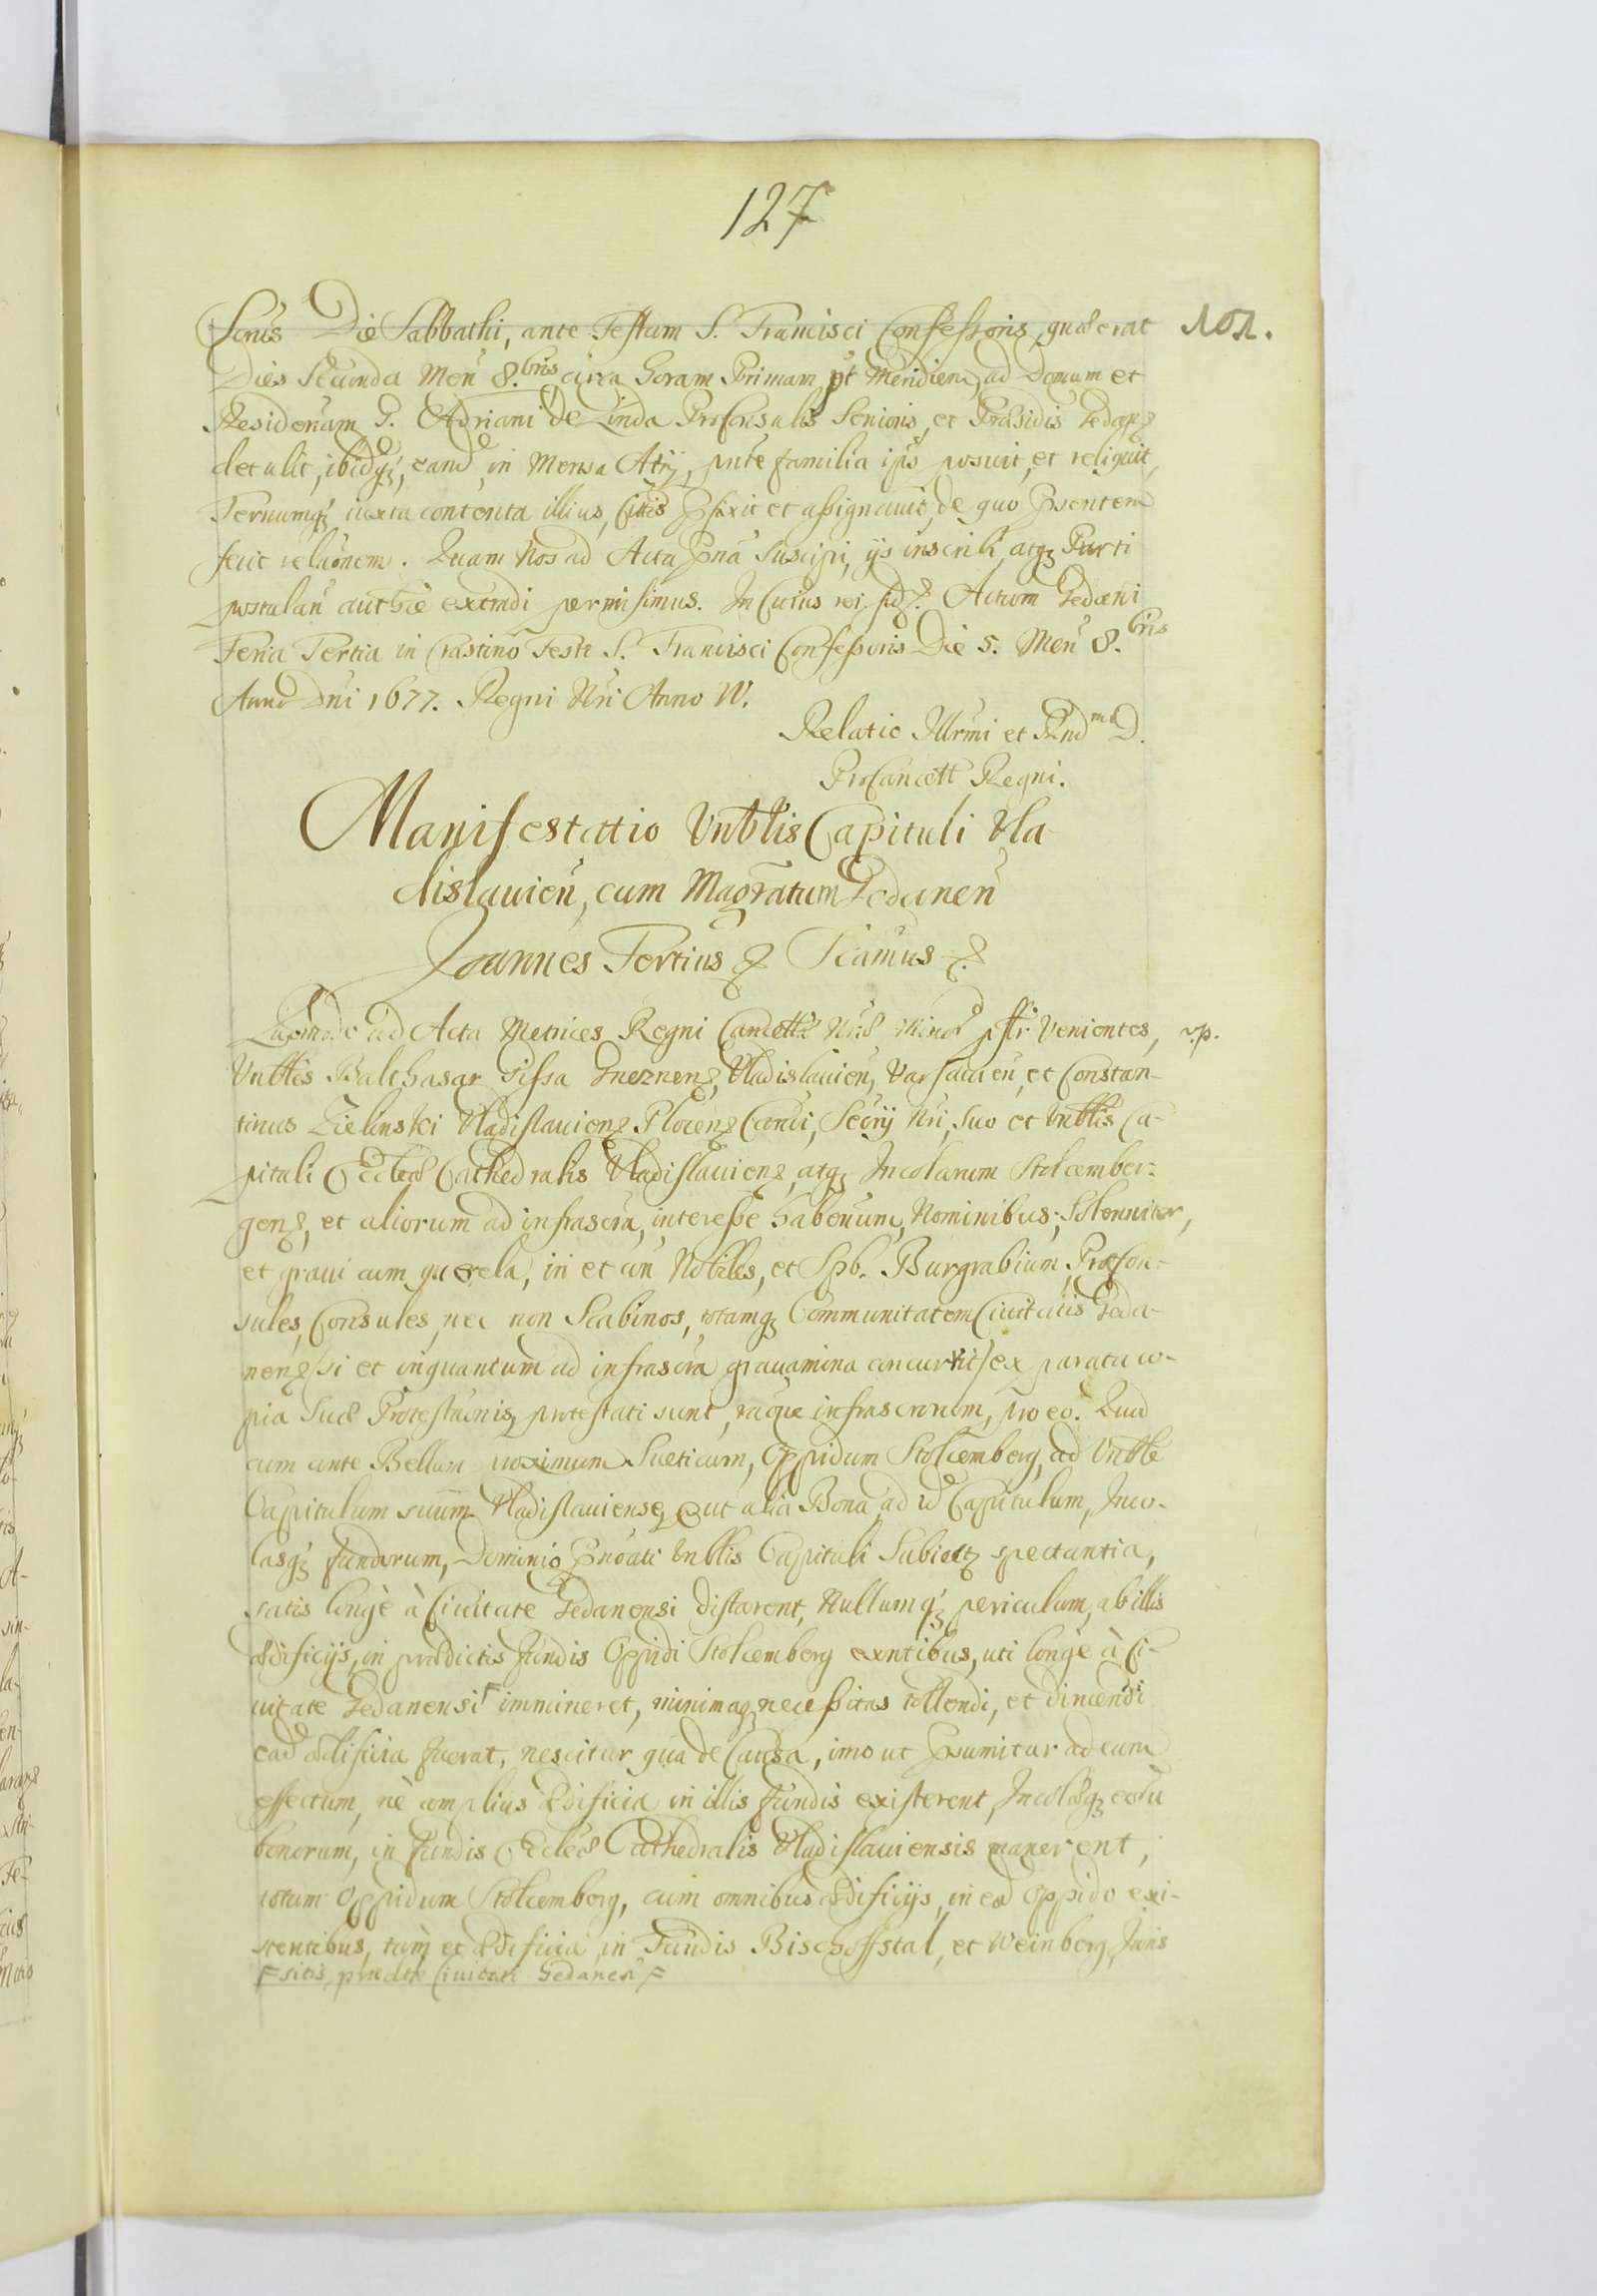 127
Die Sabbathi, ante Festum S. Francisci Confessoris, quæ erat 101.
Dies Secunda Men 8.bris circa horam Primam pt Meridiem, ad Domum et
Residenam G. Adriani de Linda ProConsulis Senioris, et Præsidis Gedan
detulit, ibidq, eand in Mensa Atrij, pnte familia ips posuit, et reliquit,
Ternumq iuxta contenta illius, Cittis pfixit et assignauit, de quo psentem
fecit relaonem. Quam Nos ad Acta pna Suscipi, ijs inscribi, atq Parti
postulan authcè extradi permisimus. In Cuius rei fid. Actum Gedani
Feria Tertia in Crastino Festi S. Francisci Confessoris Die 5. Men 8.bris
Anno Dni 1677. Regni Nri Anno IV.
Relatio Illrmi et Rndmi D.
ProCancell Regni.
Manifestatio Vnblis Capituli Vla-
dislauien, cum Magratum Gedanen
Joannes Tertius Scimus
ad Acta Metrices Regni Cancell Nræ Minor psr Venientes, v.p.
Vnbles Balthasar Gneznen, Vladislauien, Varsauien, et Constan-
tinus Zielinski Vladislauien Plocen Canci, Secrij Nri, Suo et Vnblis Ca-
pituli Eccleæ Cathedralis Vladislauien, atq Incolarum Stolcember-
gen, et aliorum ad infrascra, interesse habenum, Nominibus; Solenniter,
et graui cum querela, in et con Nobiles, et Spb. Burgrabium, Procon-
sules, Consules, nec non Scabinos, totamq Communitatem Ciuitatis Geda-
nen si et inquantum ad infrascra grauamina concurrit, ex parata co-
pia Suæ Protestaonis, protestati sunt, infrascronum, pro eo. Quod
cum ante Bellum proximum Sueticum, Oppidum Stolcemberg, ad Vnble
Capitulum suum Vladislauiense, put alia Bona ad id Capitulum, Inco-
lasq fundorum, Dominio pnoati Vnblis Capituli Subiect spectantia,
satis longè à Ciuitate Gedanensi distarent, Nullumq periculum, ab illis
ædificijs, in prædictis fundis Oppidi Stolcemberg exntibus, uti longè à Ci-
uitate Gedanensi imminerèt, minimaq necessitas tollendi, et
ead ædificia fuerat, nescitur qua de Causa, imo ut psumitur ad eum
effectum, nè amplius ædificia in illis fundis existerent, Incolæq eoru
bonorum, in fundis Eccleæ Cathedralis Vladislauiensis manerent,
totum Oppidum Stolcemberg, cum omnibus ædificijs, in eod Oppido exi-
stentibus, tùm et ædificia in Fundis Bischoffstal, et Weinberg, Juris
sitis, Ciuitati Gedanen